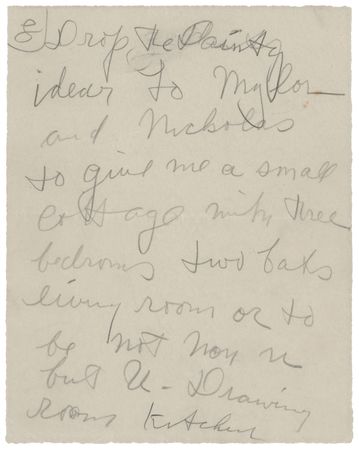 Drop the
idear to
and Nicholas
to give me a small
cottage with three
bedrooms two baths
living room or to
be not non u
but U - Drawing
room Kitchen